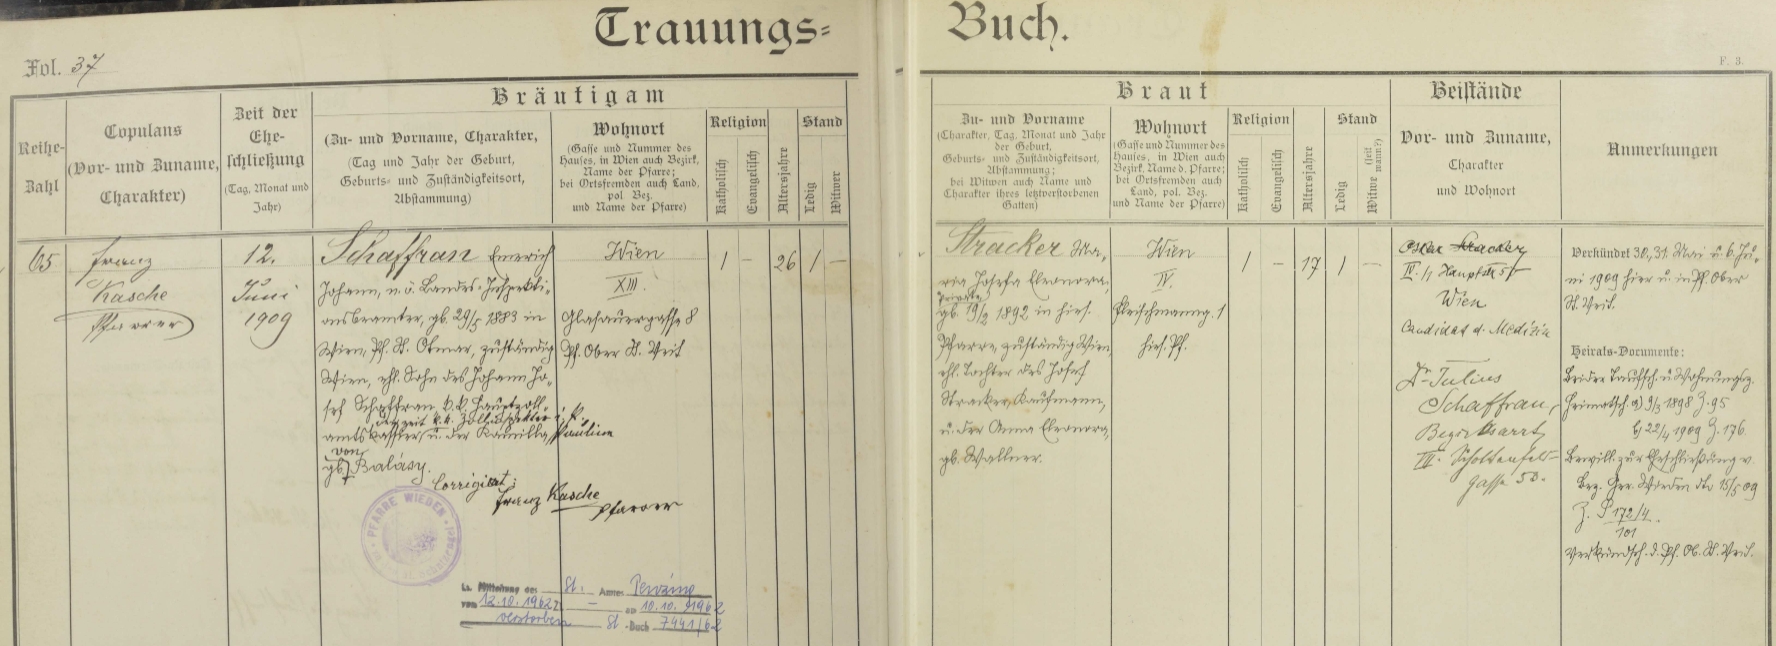 Trauungs=
Buch.
Fol. 37
F. 3.
Reihe-
Zahl
Copulans
(Vor- und Zuname,
Charakter)
Zeit der
Ehe-
schließung
(Tag, Monat und
Jahr)
Bräutigam
(Zu- und Vorname, Charakter,
(Tag und Jahr der Geburt,
Geburts- und Zuständigkeitsort,
Abstammung)
Wohnort
(Gasse und Nummer des
Hauses, in Wien auch Bezirk,
Name der Pfarre;
bei Ortsfremden auch Land,
pol. Bez.
und Name der Pfarre)
Religion
Katholisch
Evangelisch
Altersjahre
Stand
Ledig
Witwer
65
Franz
Kasche
Pfarrer
12.
Juni
1909
Schaffran Emerich
Johann, n. ö. Landes-Inspekti-
onsbeamter, gb. 29/5 1883 in
Wien, Pf. St. Otmar, zuständig
Wien, ehl. Sohn des Johann Jo-
sef Schaffran k. k. Hauptzoll-
derzeit k. k. Zollinspektor i. P.
amtskassier u. der Kamilla Pauline
von
gb. Balásy.
Corrigiert:
Franz Kasche
Pfarrer
Wien
XIII.
Glasauergasse 8
Pf. Ober St. Veit
1 – 26 1 –
PFARRE WIEDEN
Lt. Mitteilung des St. Amtes Penzing
vom 12.10.1962 Z. – am 10.10.1962
verstorben St.-Buch 7441/62
Braut
Zu- und Vorname
(Charakter, Tag, Monat und Jahr
der Geburt,
Geburts- und Zuständigkeitsort,
Abstammung;
bei Witwen auch Name und
Charakter ihres letztverstorbenen
Gatten)
Wohnort
(Gasse und Nummer des
Hauses, in Wien auch
Bezirk, Name d. Pfarre;
bei Ortsfremden auch
Land, pol. Bez.
und Name der Pfarre)
Religion
Katholisch
Evangelisch
Altersjahre
Stand
Ledig
Witwe (seit wann?)
Stracker Ma-
ria Josefa Eleonora,
Private
gb. 19/2 1892 in hies.
Pfarre, zuständig Wien,
ehl. Tochter des Josef
Stracker, Kaufmann,
u. der Anna Eleonora,
gb. Wallner.
Wien
IV.
Fleischmanng. 1
hies. Pf.
1 – 17 1 –
Beistände
Vor- und Zuname,
Charakter
und Wohnort
Oskar Stracker
IV./1 Hauptstr. 51
Wien
Candidat d. Medizin
Dr Julius
Schaffran,
Bezirksarzt
Schottenfeld-
gasse 53.
Anmerkungen
Verkündet 30., 31. Mai u. 6. Ju-
ni 1909 hier u. in Pf. Ober
St. Veit.
Heirats-Documente:
Beider Taufsch. u. Wohnungsz.
Heimatsch. a) 9/3 1898 Z. 95
b) 22/4 1909 Z. 176.
Bewill. zur Eheschließung v.
Bez. Ger. Wieden dto 15/5 09
Z. P 172/4
101
Verkündsch. d. Pf. Ob. St. Veit.